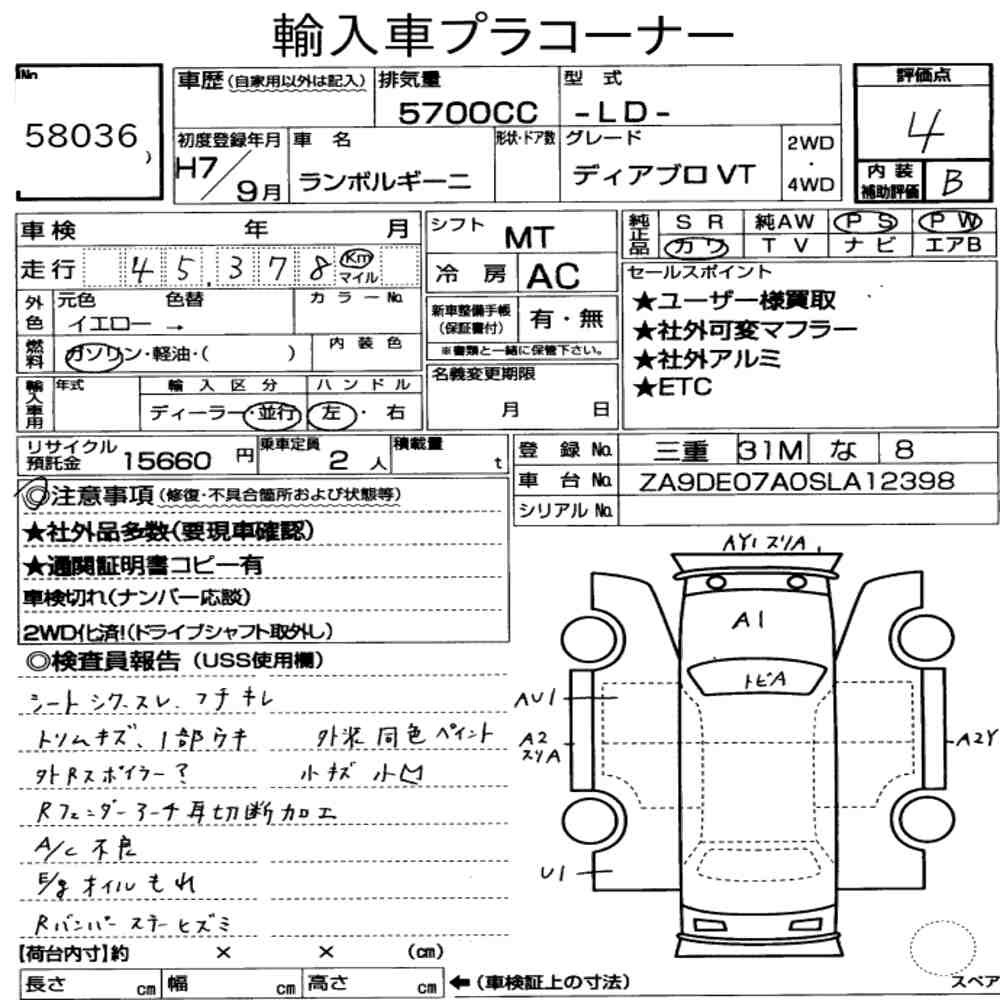 輸入車プラコーナー
No.
58036
車歴(自家用以外は記入)
排気量 5700CC
型 式 -LD-
評価点
4
初度登録年月 H7/9月
車 名 ランボルギーニ
形状・ドア数
グレード ディアブロ VT
2WD・4WD
内装補助評価 B
車検 年 月
走行 45,378 Km マイル
外色 元色 イエロー → 色替
カラーNo.
燃料 ガソリン・軽油・( )
内装色
輸入車用 年式
輸入区分 ディーラー・並行
ハンドル 左・右
シフト MT
冷房 AC
新車整備手帳(保証書付) 有・無
※書類と一緒に保管下さい。
名義変更期限
月 日
純正品 SR 純AW PS PW
カワ TV ナビ エアB
セールスポイント
★ユーザー様買取
★社外可変マフラー
★社外アルミ
★ETC
リサイクル預託金 15660円
乗車定員 2人
積載量 t
登録No. 三重 31M な 8
車台No. ZA9DE07A0SLA12398
シリアルNo.
◎注意事項(修復・不具合箇所および状態等)
★社外品多数(要現車確認)
★通関証明書コピー有
車検切れ(ナンバー応談)
2WD化済!(ドライブシャフト取外し)
◎検査員報告(USS使用欄)
シート シワ.スレ.フチキレ
トリムキズ、1部ウキ 外装同色ペイント
外Rスポイラー? 小キズ 小凹
Rフェンダーアーチ耳切断加工
A/C 不良
E/g オイルもれ
Rバンパーステーヒズミ
AY1 スリA
A1
トビA
AU1
A2
スリA
A2Y
U1
【荷台内寸】約 × × (cm)
長さ cm 幅 cm 高さ cm ←(車検証上の寸法)
スペア